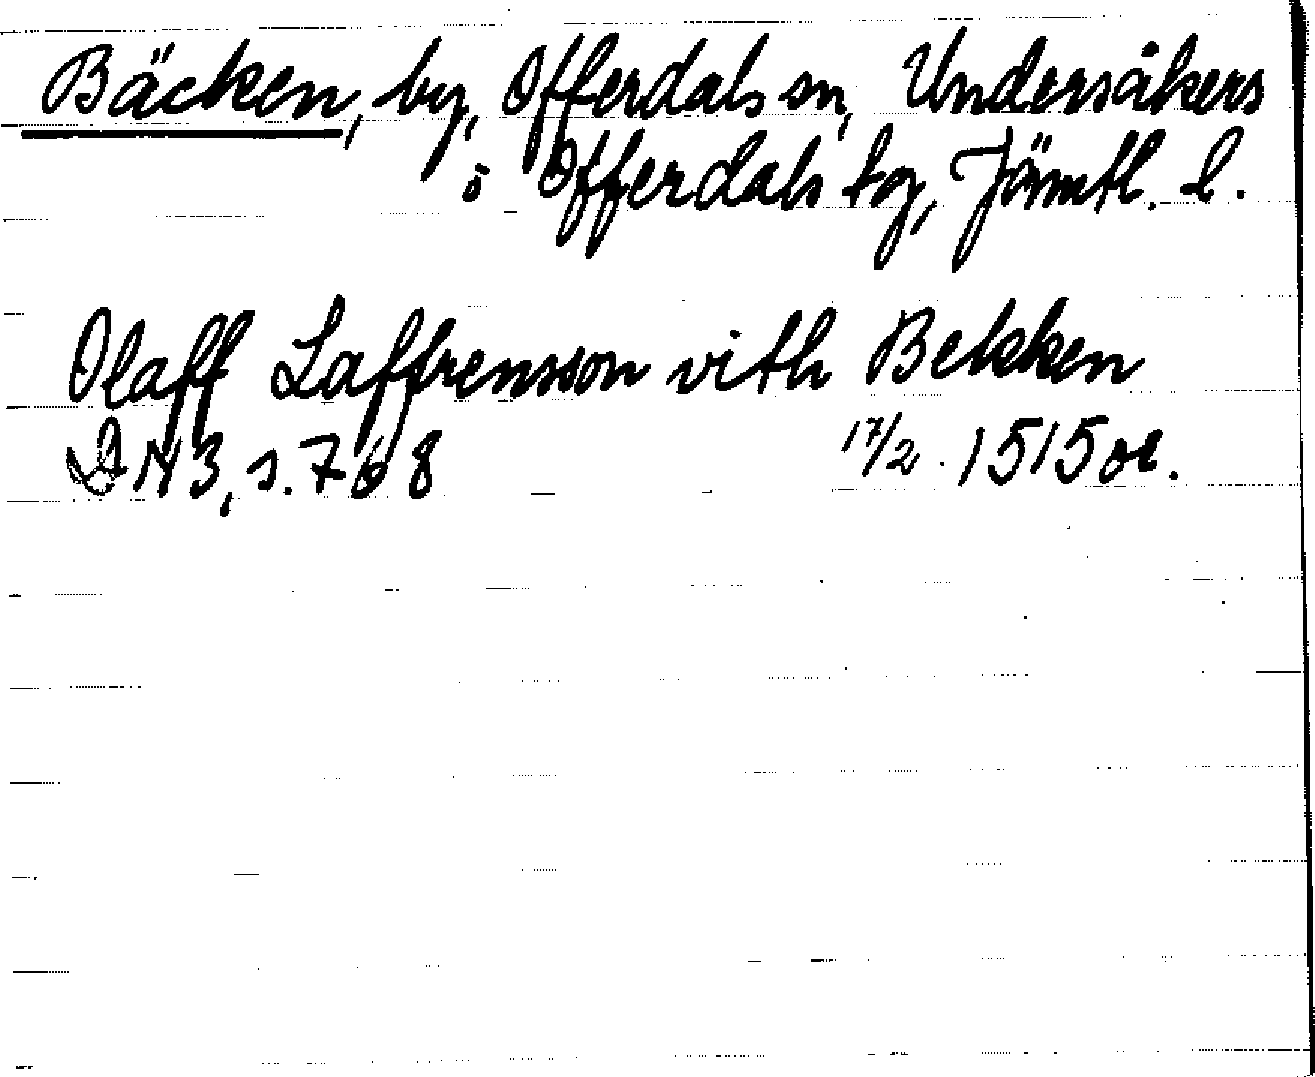 Bäcken, by, Offerdals sn, Undersåkers
o Offerdals tg, Jämtl. l.
Olaff Laffrensson vith Bekken
DN 3, s. 768 17/2. 1515 or.